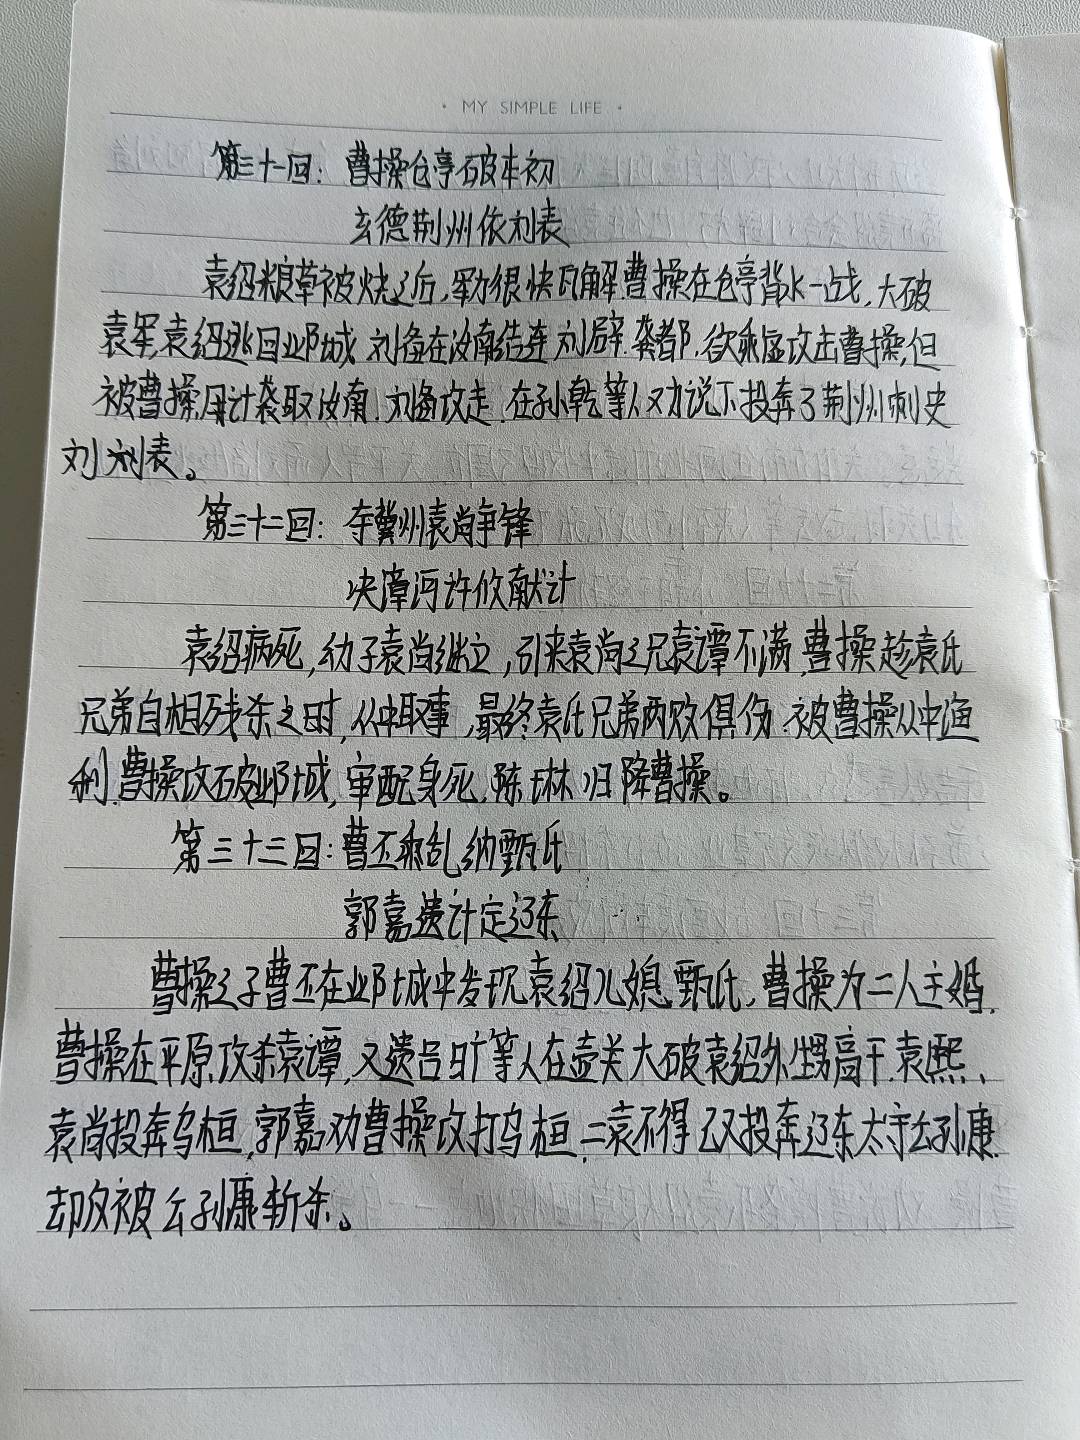 · MY SIMPLE LIFE ·
第三十一回：曹操仓亭破本初
玄德荆州依刘表
袁绍粮草被烧之后，军力很快瓦解.曹操在仓亭背水一战，大破
袁军,袁绍逃回邺城.刘备在汝南结连刘辟.龚都.欲乘虚攻击曹操,但
被曹操用计袭取汝南.刘备败走.在孙乾等人劝说下投奔了荆州刺史
刘刘表。
第三十二回：夺冀州袁尚争锋
决漳河许攸献计
袁绍病死，幼子袁尚继立，引来袁尚之兄袁谭不满,曹操趁袁氏
兄弟自相残杀之时，从中取事，最终袁氏兄弟两败俱伤.被曹操从中渔
利.曹操攻破邺城，审配身死.陈琳归降曹操。
第三十三回：曹丕乘乱纳甄氏
郭嘉遗计定辽东
曹操之子曹丕在邺城中发现袁绍儿媳甄氏，曹操为二人主婚.
曹操在平原攻杀袁谭，又遣吕旷等人在壶关大破袁绍外甥高干.袁熙、
袁尚投奔乌桓,郭嘉劝曹操攻打乌桓.二袁不得已又投奔辽东太守公孙康.
却被公孙康斩杀。